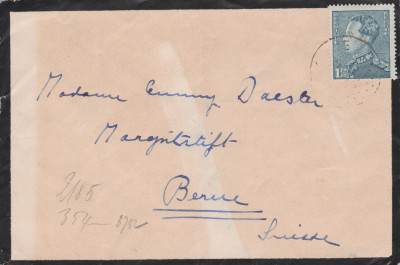 Madame Emmy Daester
Margritstift
Berne
Suisse
2185
354